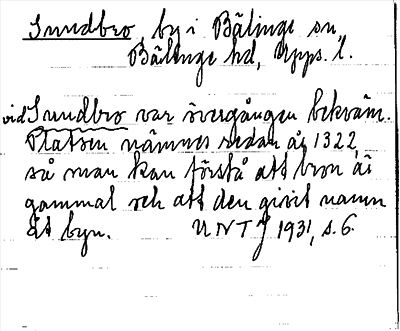 Sundbro, by i Bälinge sn,
Bälinge hd, Upps. l.
vid Sundbro var övergången bekväm.
Platsen nämnes redan år 1322,
så man kan förstå att bron är
gammal och att den givit namn
åt byn. UNT J 1931, s. 6.